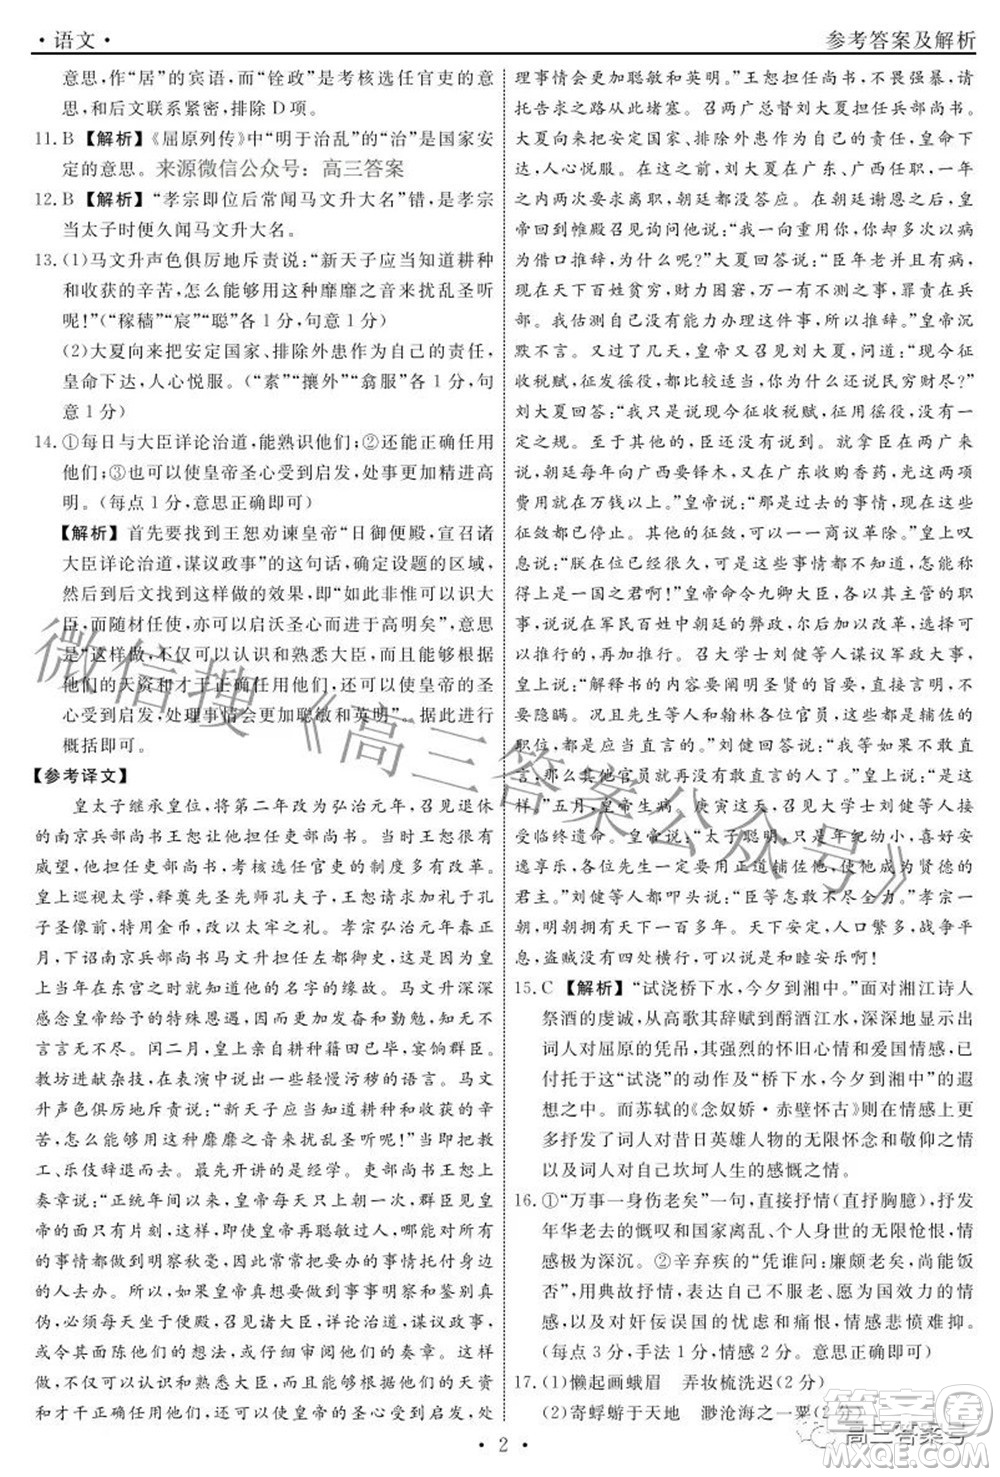 ·语文·
参考答案及解析
意思,作“居”的宾语,而“铨政”是考核选任官吏的意
思,和后文联系紧密,排除D项。
11. B 【解析】《屈原列传》中“明于治乱”的“治”是国家安
定的意思。来源微信公众号：高三答案
12. B 【解析】“孝宗即位后常闻马文升大名”错,孝宗
当太子时便久闻马文升大名。
13. (1)马文升声色俱厉地斥责说:“新天子应当知道耕种
和收获的辛苦,怎么能够用这种靡靡之音来扰乱圣听
呢!”(“稼穑”“宸”“聪”各1分,句意1分)
(2)大夏向来把安定国家、排除外患作为自己的责任,
皇命下达,人心悦服。(“素”“攘外”“翕服”各1分,句
意1分)
14. ①每日与大臣详论治道,能熟识他们;②还能正确任用
他们;③也可以使皇帝圣心受到启发,处事更精进高
明。(每点1分,意思正确即可)
【解析】首先要找到王恕劝谏皇帝“日御便殿,宣召诸
大臣详论治道,谋议政事”的这句话,确定设题的区域,
然后到后文找这样做的效果,即“如此非惟可以识大
臣,而随材任使,亦可以启沃圣心而于高明矣”,意思
是“这样做,不仅可以认识和熟悉大臣,而且可以根据
他们的天资和才干正确任用,还能使皇帝的圣
心受到启发,处理事情会更加聪敏和英明”,据此进行
概括即可。
【参考译文】
皇太子继承皇位,将第二年改为弘治元年,召见退休
的南京兵部尚书王恕让他担任吏部尚书。当时王恕很有
威望,他担任吏部尚书,考核选任官吏的制度多有改革。
皇上巡视太学,释奠先圣先师孔夫子,当皇帝走到孔夫
子圣像前时,特用金币,改以太牢之礼。孝宗弘治元年春正
月,下诏南京兵部尚书马文升担任左都御史,这是因为皇
上年轻时在东宫就知道他的名字的缘故。马文升深深
感念皇帝给予的特殊恩遇,因而更加发奋和勤勉,知无不
言言无不尽。闰二月,皇上亲自耕种籍田已毕,宴郇群臣。
教坊进献杂技,在表演中间夹杂着轻慢污秽的语言。马文
升声色俱厉地斥责说:“新天子应当知道耕种和收获的辛
苦,怎么能够用这种靡靡之音来扰乱圣听呢!”马上把教
工、乐伎辞出去。最先开讲的是经学。吏部尚书王恕上
奏章说:“正统年间以来,皇帝每天只有一次上朝,群臣见皇
帝的时间只有片刻,这样,即使皇帝再聪敏过人,怎能对所有
的事情都做到明察秋毫,不过是把事情托付给身边
的人办理。所以,如果皇帝想做到事事明察和鉴别,必
须每天坐于便殿,召见诸大臣,详论治道,谋议政事,
或者当面陈他们的想法,或审阅他们的奏章。这样做,
不仅可以认识和熟悉大臣,而且可以根据他们的天资
和才干正确任用,还可以使皇帝的圣心受到启发,处
理事情会更加聪敏和英明。”王恕担任尚书,不畏强暴,请
托告求之路从此堵塞。召两广总督刘大夏担任兵部尚书。
大夏向来把安定国家、排除外患作为自己的责任,皇命下
达,人心悦服。这之前,刘大夏在广东、广西任职,一年
之内两次辞官,朝廷都没有答应。刘大夏谢恩之后,皇
帝回到帷殿召见询问他说:“我屡次重用你,你屡次因
为借口推辞,为什么呢?”大夏回答说:“臣年老并且有病,
看到天下百姓贫穷,财力困窘,万一有不测之事,罪责在兵
部。我估测自己没有能力办理这件事,所以推辞。”皇帝沉
默不言。又过了几天,皇帝又召见刘大夏,问道:“现今
征收税赋,征发徭役,都比较适当,为什么说民穷财尽?”
刘大夏回答:“我只是说现今征收税赋,征用徭役,没有一
定之规。至于其他的,臣还没有说到。就拿臣在两广来
说,朝廷每年从广西要铎木,又在广东收香药,光这两项
费用就在万钱以上。”皇帝说:“那是过去的事情,像这些
征敛都已停止。其他的征敛,可以一一商议革除。”皇上叹
息说:“朕在位已经很久,今天才知道天下民穷财尽,还说什
么是一国之君!”皇帝命令九卿大臣,各以其主管的职
事,说出在军民百姓中间的弊政,必须革除以及应该
可以推行的,再予推行。召大学士刘健等人谋议军政大事,
皇帝说:“解释书的内容要阐明圣贤的旨意,直接言明,不
要隐瞒。况且先生等人和翰林各位官员,都是辅佐的
职位,那都应当直言的。”刘健回答说:“臣等不敢直言,
那么其他官员就再没有敢直言的人了。”皇帝说:“是这
样。”五月,皇帝生病。庚寅这天,召见大学士刘健等人
接受临终遗命。皇帝说:“太子聪明,只是年纪幼小,喜好安
逸享乐,各位先生一定要用正道辅佐他,使他成为贤德的
君主。”刘健等人都叩头说:“臣等怎敢不尽力!”孝宗一
朝,明朝有天下一百多年。天下安定,人口繁多,战争平
息,盗贼在四处横行,怎么能和睦安乐到这个地步呢!
15. C 【解析】“试浇桥下水,今夕到湘中。”面对湘江诗人
祭酒的虔诚,从高歌其辞赋到酹酒江水,深深地显示出
词人对屈原的凭吊,其强烈的怀旧心情和爱国情感,已
付托于这“试浇”的动作及“桥下水,今夕到湘中”的遐
想之中。而苏轼的《念奴娇·赤壁怀古》则在情感上更
多抒发了词人对昔日英雄人物的无限怀念和敬仰之情
以及词人对自己坎坷人生的感慨之情。
16. ①“万事一身伤老矣”一句,直接抒情(直抒胸臆),抒发
年华老去的慨叹和国家离乱、个人身世的无限怆恨,情
感极为深沉。②辛弃疾的“凭谁问:廉颇老矣,尚能饭
否”,用典故抒情,表达了自己不服老、愿为国效力的爱国
情怀以及对奸佞误国的忧虑和痛恨,情感悲愤激昂。
(每点3分,手法1分,情感2分。意思正确即可)
17. (1)懒起画蛾眉　弄妆梳洗迟(2分)
(2)寄蜉蝣于天地　渺沧海之一粟(2分)
· 2 ·
微信搜《高三答案公众号》
答案圈
高三答案号
MXQE.COM